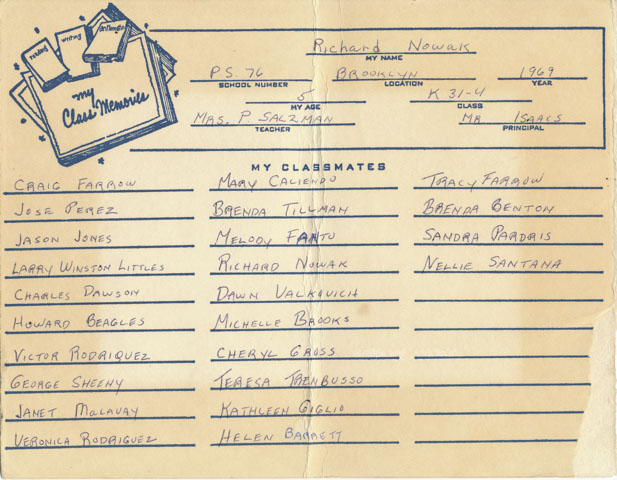 reading writing arithmetic
my
Class Memories
Richard Nowak
MY NAME
P.S. 76 Brooklyn 1969
SCHOOL NUMBER LOCATION YEAR
5 K 31-4
MY AGE CLASS
Mrs. P. Salzman Mr Isaacs
TEACHER PRINCIPAL
MY CLASSMATES
Craig Farrow Mary Caliendo Tracy Farrow
Jose Perez Brenda Tillman Brenda Benton
Jason Jones Melody Fantu Sandra Pardris
Larry Winston Littles Richard Nowak Nellie Santana
Charles Dawson Dawn Valkovich
Howard Beagles Michelle Brooks
Victor Rodriquez Cheryl Gross
George Sheehy Teresa Trenbusso
Janet Malavay Kathleen Giglio
Veronica Rodriguez Helen Barrett